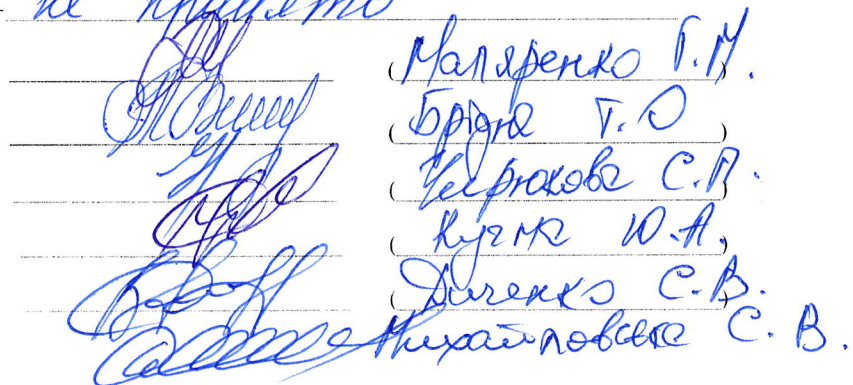 не прийнято
(Маляренко Г.М.)
(Брідня Т.О)
(Чирюкова С.П.)
(Кузма Ю.А.)
(Диченко С.В.)
Михайловська С.В.